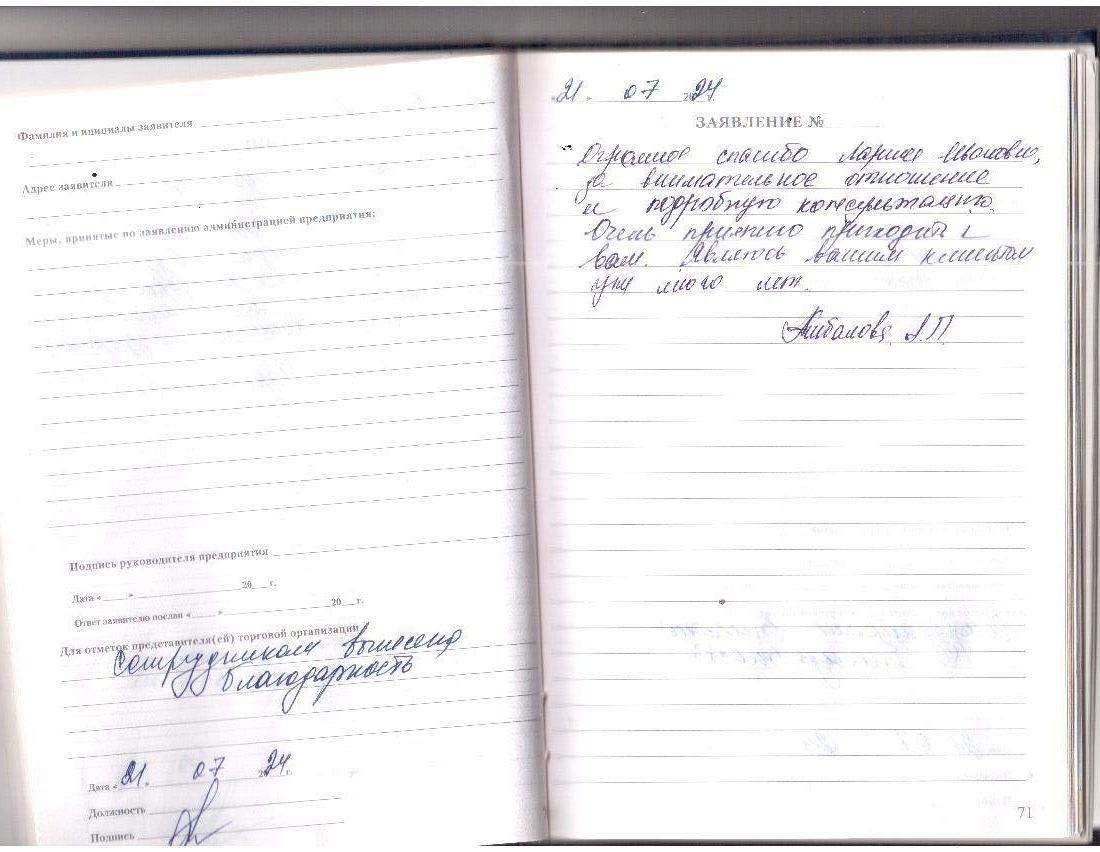 Фамилия и инициалы заявителя
Адрес заявителя
Меры, принятые по заявлению администрацией предприятия:
Подпись руководителя предприятия
Дата «___» ___ 20__ г.
Ответ заявителю послан «___» ___ 20__ г.
Для отметок представителя(ей) торговой организации
Сотрудникам вынесена
благодарность
Дата «21. 07 2024 г.
Должность
Подпись
«21» 07 2024.
ЗАЯВЛЕНИЕ №
Огромное спасибо Ларисе
за внимательное отношение
и подробную консультацию.
Очень приятно приходить к
вам. Являюсь вашим клиентом
уже много лет.
Л.П.
71